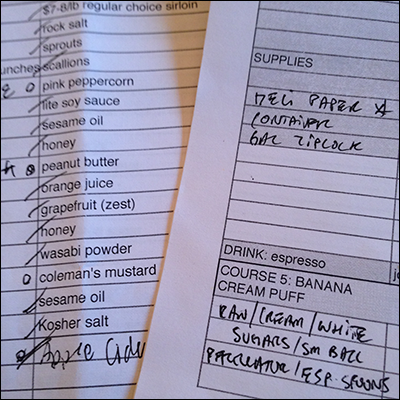 $7-8/lb regular choice sirloin
rock salt
sprouts
unches scallions
pink peppercorn
lite soy sauce
sesame oil
honey
peanut butter
orange juice
grapefruit (zest)
honey
wasabi powder
coleman's mustard
sesame oil
Kosher salt
Apple Cide
SUPPLIES
DELI PAPER
CONTAINER
GAL ZIPLOCK
DRINK: espresso
COURSE 5: BANANA
CREAM PUFF
RAW/CREAM/WHITE
SUGARS/SM BALL
/ESP. SPOONS